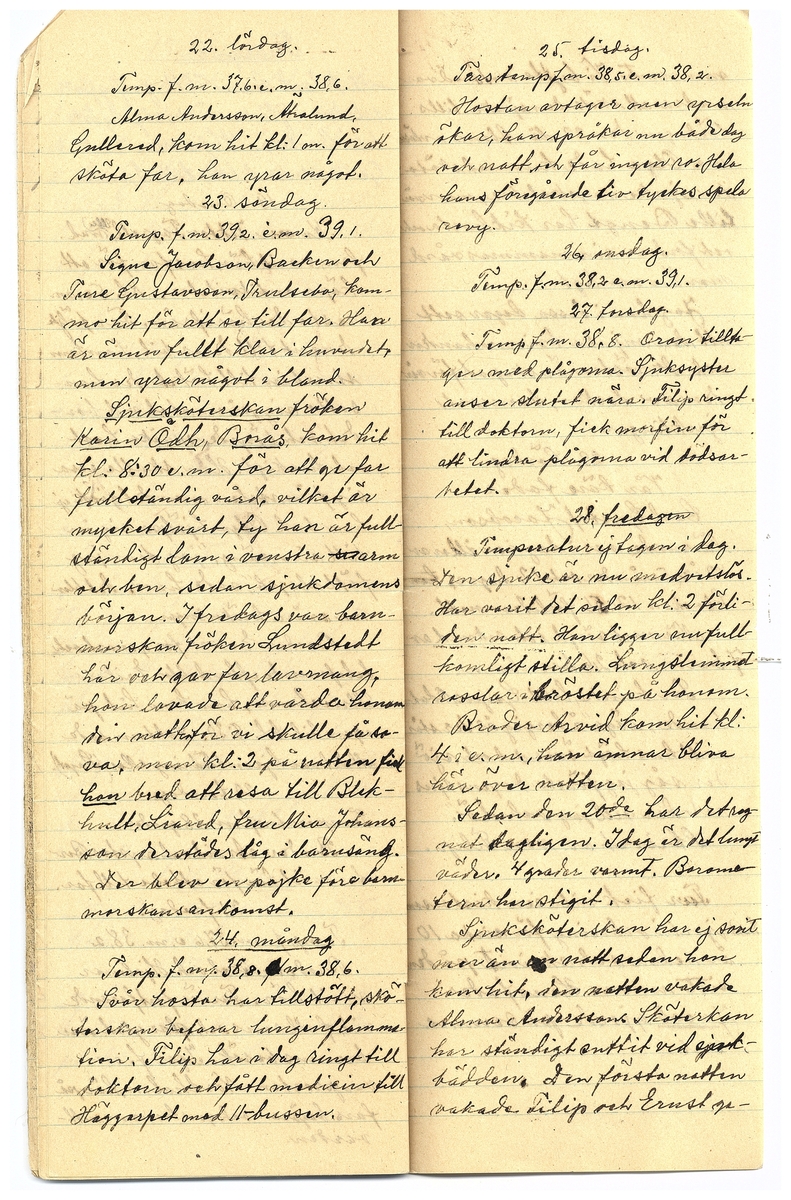 22. lördag.
Temp. f. m. 37,6. e. m. 38,6.
Alma Andersson, Åkralund,
Gullered, kom hit kl: 1 m. för att
sköta far, han yrar något.
23. söndag.
Temp. f. m. 39,2. e. m. 39,1.
Signe Jacobson, Backen och
Ture Gustavsson, Trulsebo, kom-
mo hit för att se till far. Han
är ännu fullt klar i huvudet,
men yrar något i bland.
Sjuksköterskan fröken
Karin Ödh, Borås, kom hit
kl: 8:30 e. m. för att ge far
fullständig vård, vilket är
mycket svårt, ty han är full-
ständigt lam i venstra arm
och ben, sedan sjukdomens
början. I fredags var barn-
morskan fröken Lundstedt
här och gav far lavmang,
hon lovade att vårda honom
den natt, för vi skulle få so-
va, men kl: 2 på natten fick
hon bred att resa till Blek-
hult, Liared, fru Mia Johans-
son derstädes låg i barnsäng.
Der blev en pojke före barn-
morskans ankomst.
24. måndag
Temp. f. m. 38,8. m. 38,6.
Svår hosta har tillstött, skö-
terskan befarar lunginflamma-
tion. Filip har i dag ringt till
doktorn och fått medicin till
Häggarpet med 11-bussen.
25. tisdag.
Fars temp f. m. 38,5. e. m. 38,2.
Hostan avtager men yrseln
ökar, han språkar nu både dag
och natt, och får ingen ro. Hela
hans föregående liv tyckes spela
revy.
26. onsdag.
Temp. f. m. 38,2 e. m. 39,1.
27. torsdag.
Temp f. m. 38,8. Oron tillta-
ger med plågorna. Sjuksyster
anser slutet nära. Filip ringt
till doktorn, fick morfin för
att lindra plågorna vid dödsar-
betet.
28. fredagen
Temperatur ej tagen i dag.
Den sjuke är nu medvetslös.
Har varit det sedan kl: 2 förli-
den natt. Han ligger nu full-
komligt stilla. Lungsleimmet
rosslar i bröstet på honom.
Broder Arvid kom hit kl:
4 i e. m., han ämnar bliva
här över natten.
Sedan den 20de har det reg-
nat dagligen. Idag är det lungt
väder. 4 grader varmt. Barome-
tern har stigit.
Sjuksköterskan har ej sovit
mer än en natt sedan hon
kom hit, den natten vakade
Alma Andersson. Sköterkan
har ständigt suttit vid sjuk-
bädden. Den första natten
vakade Filip och Ernst ge-